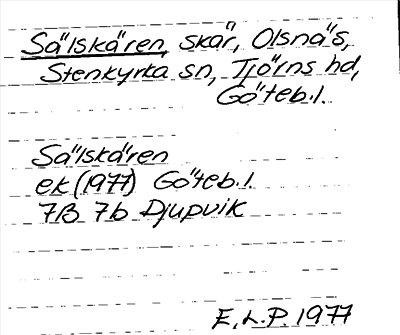 Sälskären, skär, Olsnäs,
Stenkyrka sn, Tjörns hd,
Göteb.l.
Sälskären
ek (1977) Göteb.l.
7B 7b Djupvik
E.L.P. 1977